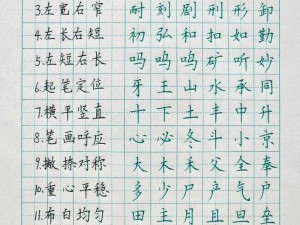 3.左宽右窄 耐 刻 剧 刑 形 卸
4.左长右短 初 弘 和 扣 如 勤
5.左短右长 吃 鸣 矿 听 妙
6.起笔定位 牙 王 山 水 承 同
7.横平竖直 十 下 土 丰 中 升
8.笔画呼应 心 必 冬 斗 小 京
9.撇捺对称 大 木 禾 父 全 奉
10.重心平稳 多 少 尸 产 气 户
11.布白均匀 田 主 月 且 旦 垒